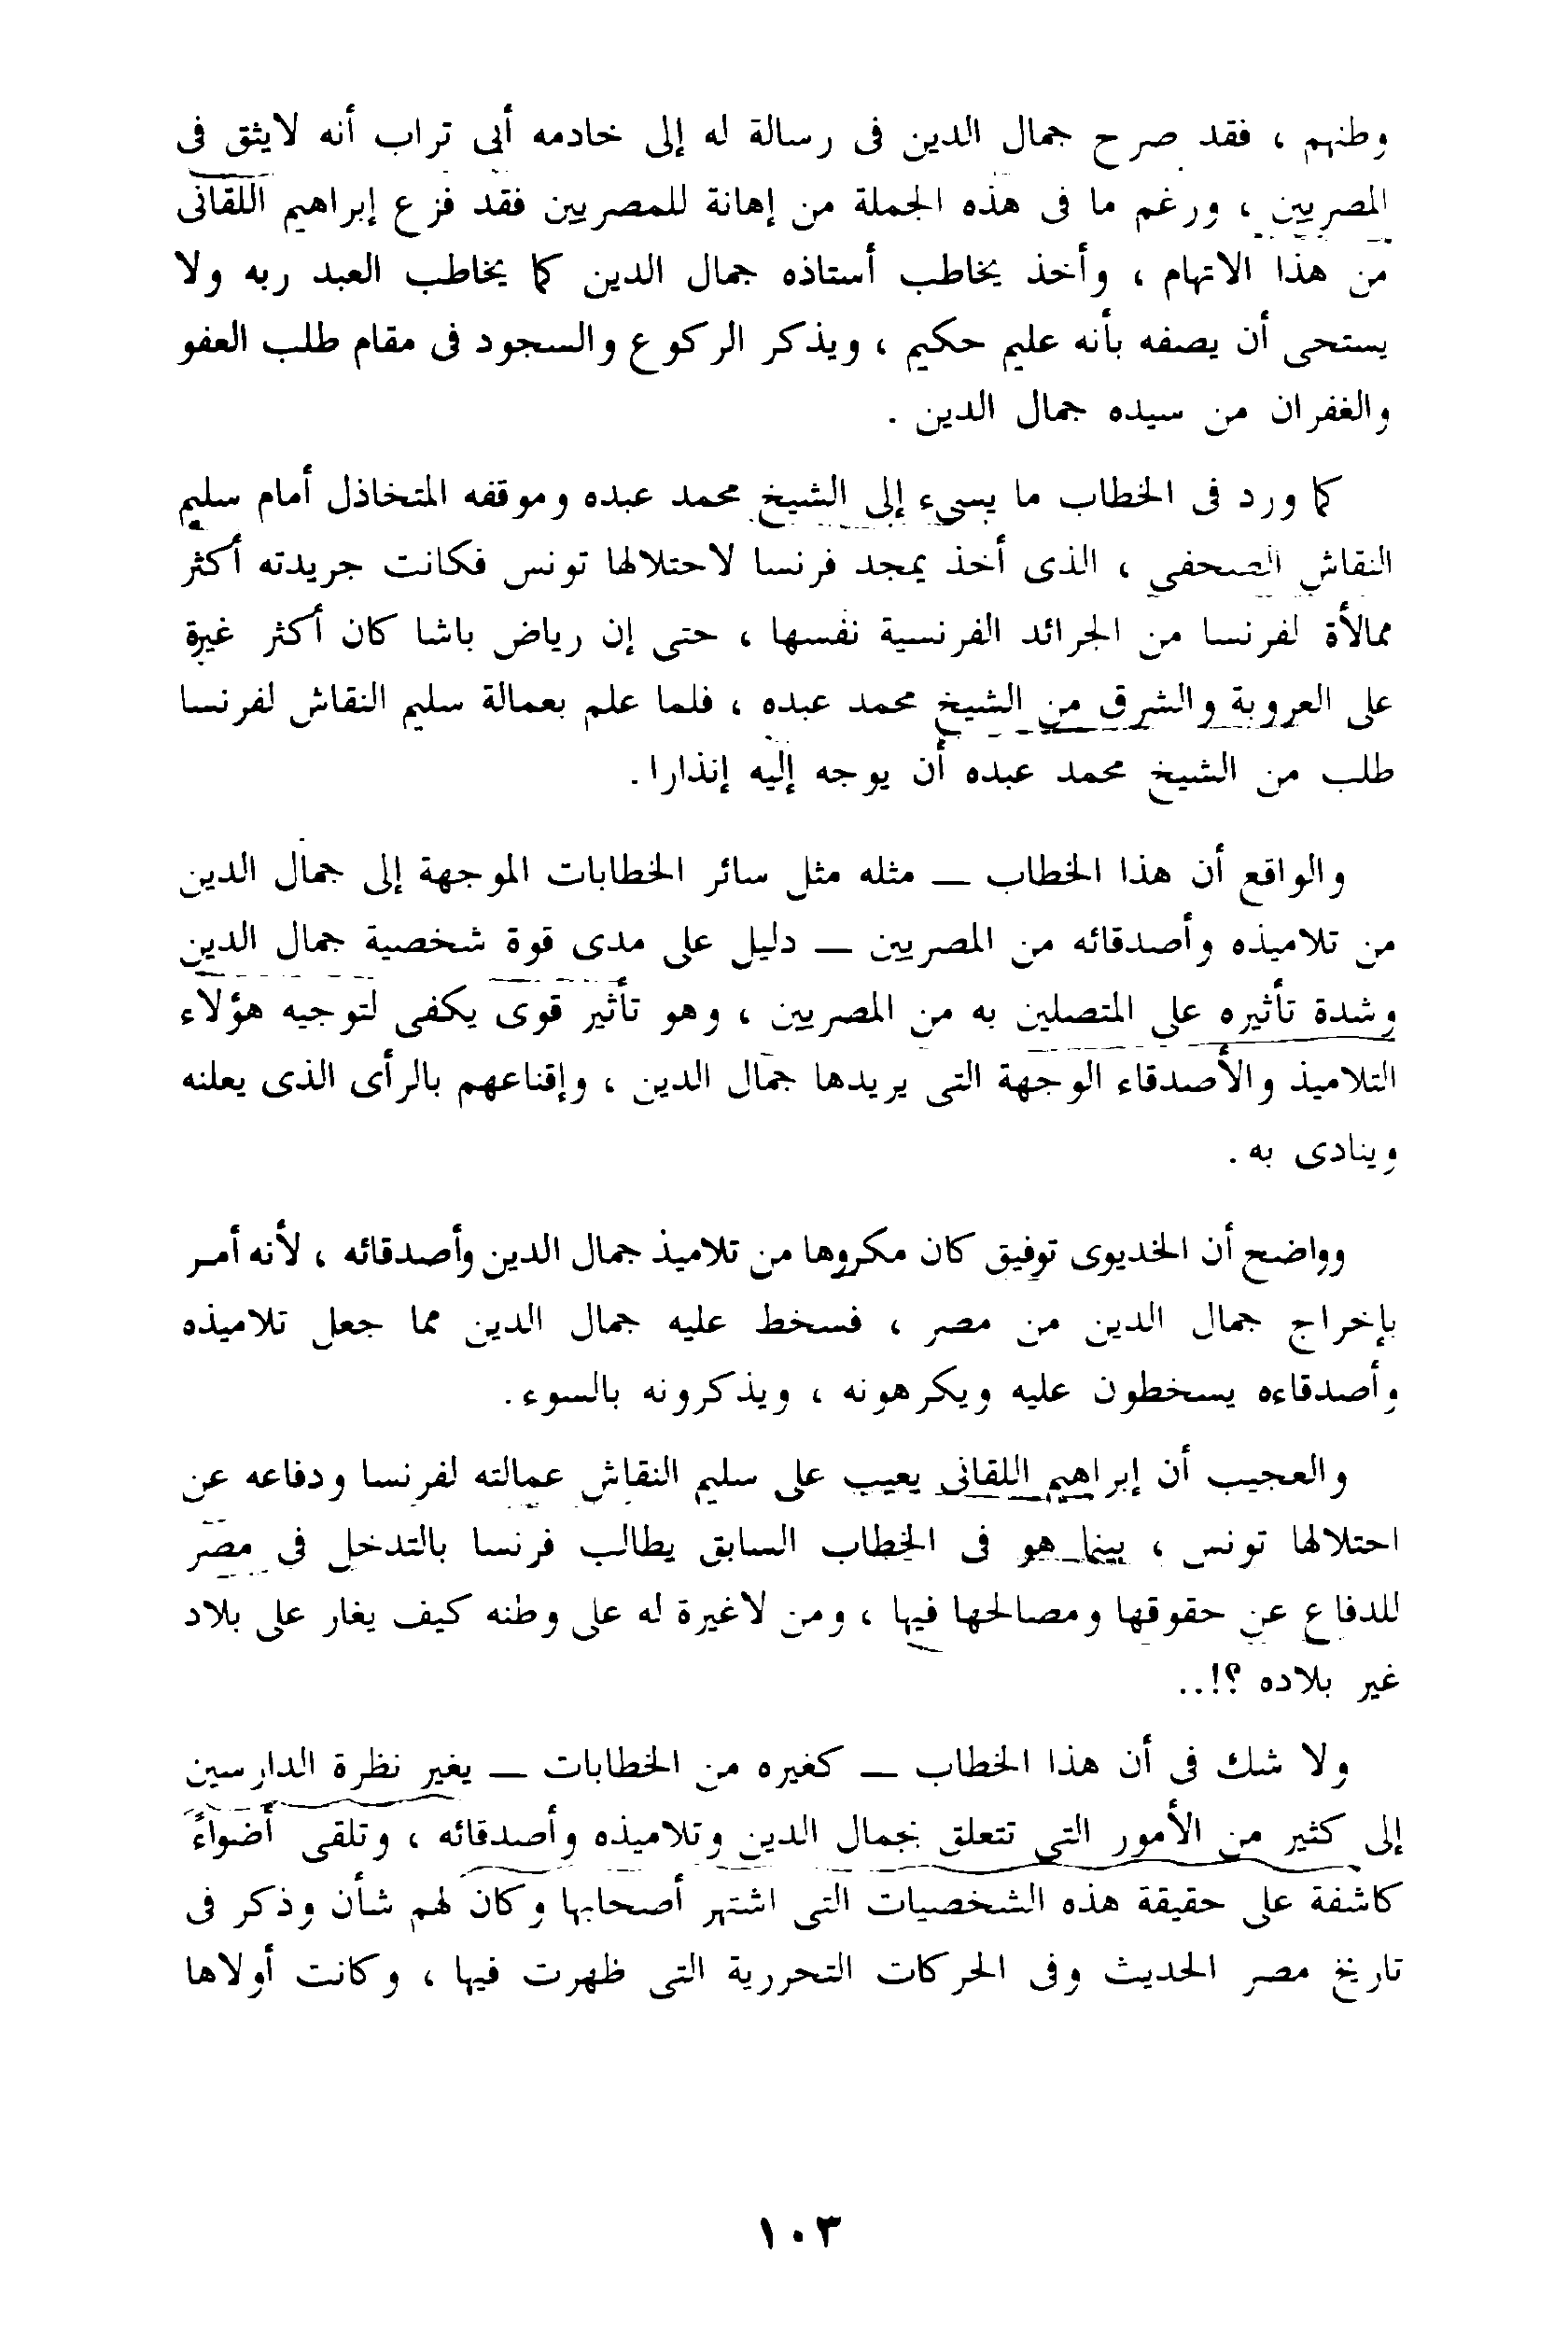 وطنهم ، فقد صرح جمال الدين فى رسالة له إلى خادمه أبى تراب أنه لايثق فى
المصريين ، ورغم ما فى هذه الجملة من إهانة للمصريين فقد فزع إبراهيم اللقانى
من هذا الاتهام ، وأخذ يخاطب أستاذه جمال الدين كما يخاطب العبد ربه ولا
يستحى أن يصفه بأنه عليم حكيم ، ويذكر الركوع والسجود فى مقام طلب العفو
والغفران من سيده جمال الدين .
كما ورد فى الخطاب ما يسىء إلى الشيخ محمد عبده وموقفه المتخاذل أمام سليم
النقاش الصحفى ، الذى أخذ يمجد فرنسا لاحتلالها تونس فكانت جريدته أكثر
ممالأة لفرنسا من الجرائد الفرنسية نفسها ، حتى إن رياض باشا كان أكثر غيرة
على العروبة والشرق من الشيخ محمد عبده ، فلما علم بعمالة سليم النقاش لفرنسا
طلب من الشيخ محمد عبده أن يوجه إليه إنذارا .
والواقع أن هذا الخطاب ــ مثله مثل سائر الخطابات الموجهة إلى جمال الدين
من تلاميذه وأصدقائه من المصريين ــ دليل على مدى قوة شخصية جمال الدين
وشدة تأثيره على المتصلين به من المصريين ، وهو تأثير قوى يكفى لتوجيه هؤلاء
التلاميذ والأصدقاء الوجهة التى يريدها جمال الدين ، وإقناعهم بالرأى الذى يعلنه
وينادى به .
وواضح أن الخديوى توفيق كان مكروها من تلاميذ جمال الدين وأصدقائه ، لأنه أمر
بإخراج جمال الدين من مصر ، فسخط عليه جمال الدين مما جعل تلاميذه
وأصدقاءه يسخطون عليه ويكرهونه ، ويذكرونه بالسوء .
والعجيب أن إبراهيم اللقانى يعيب على سليم النقاش عمالته لفرنسا ودفاعه عن
احتلالها تونس ، بينما هو فى الخطاب السابق يطالب فرنسا بالتدخل فى مصر
للدفاع عن حقوقها ومصالحها فيها ، ومن لاغيرة له على وطنه كيف يغار على بلاد
غير بلاده ؟!..
ولا شك فى أن هذا الخطاب ــ كغيره من الخطابات ــ يغير نظرة الدارسين
إلى كثير من الأمور التى تتعلق بجمال الدين وتلاميذه وأصدقائه ، وتلقى أضواءً
كاشفة على حقيقة هذه الشخصيات التى اشتهر أصحابها وكان لهم شأن وذكر فى
تاريخ مصر الحديث وفى الحركات التحررية التى ظهرت فيها ، وكانت أولاها
١٠٣